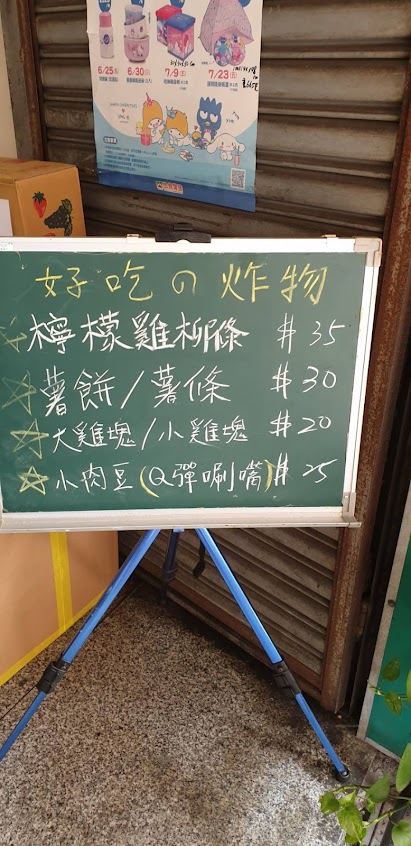 6/25(五)
6/30(三)
7/9(五)
7/23(五)
好吃の炸物
檸檬雞柳條 #35
薯餅/薯條 #30
大雞塊/小雞塊 #20
小肉豆(Q彈唰嘴) #25